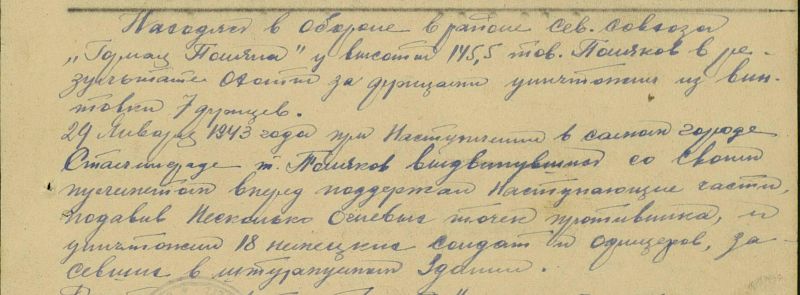 Находясь в обороне в районе сев. совхоза
„Горная Поляна" у высоты 145,5 тов. Поляков в ре-
зультате охоты за фрицами уничтожил из вин-
товки 7 фрицев.
29 Января 1943 года при наступлении в самом городе
Сталинграде т. Поляков выдвинувшись со своим
пулеметом вперед поддержал наступающие части,
подавив несколько огневых точек противника, и
уничтожил 18 немецких солдат и офицеров, за-
севших в штурмуемом здании.